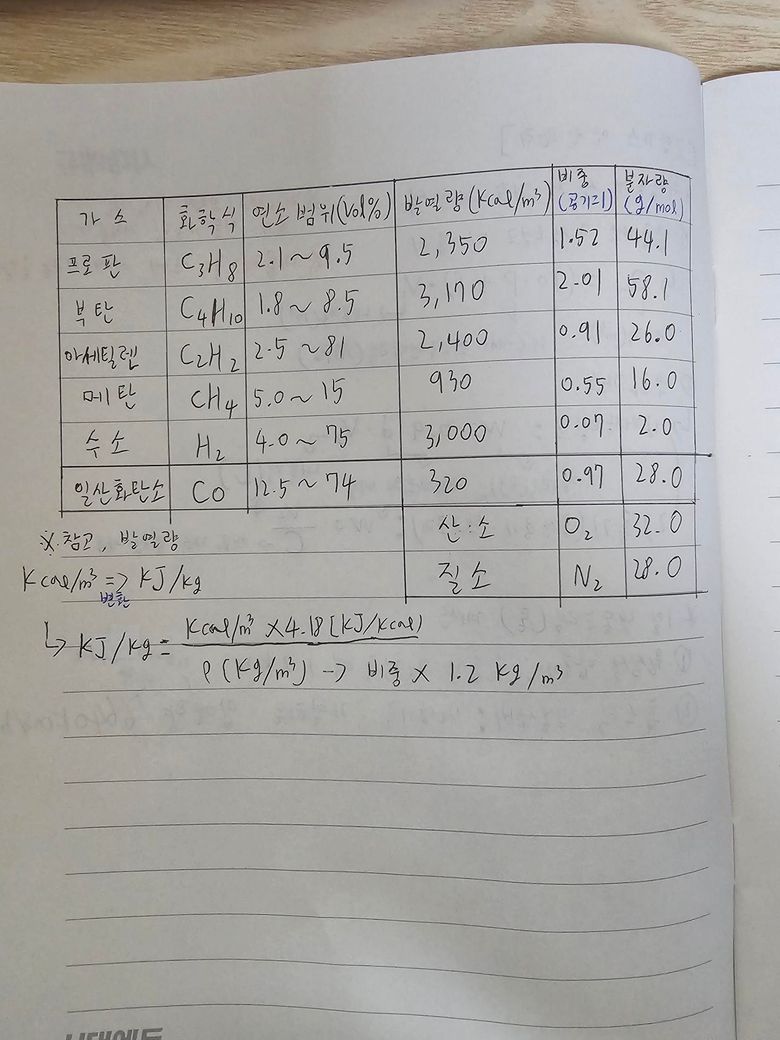 가스 화학식 연소 범위(Vol%) 발열량(Kcal/m³) 비중(공기1) 분자량(g/mol)
프로판 C₃H₈ 2.1~9.5 2,350 1.52 44.1
부탄 C₄H₁₀ 1.8~8.5 3,170 2.01 58.1
아세틸렌 C₂H₂ 2.5~81 2,400 0.91 26.0
메탄 CH₄ 5.0~15 930 0.55 16.0
수소 H₂ 4.0~75 3,000 0.07 2.0
일산화탄소 CO 12.5~74 320 0.97 28.0
산소 O₂ 32.0
질소 N₂ 28.0
※참고, 발열량
Kcal/m³ => KJ/kg
변환
↳ KJ/kg = Kcal/m³ × 4.18 [KJ/Kcal]
ρ(Kg/m³) → 비중 × 1.2 Kg/m³